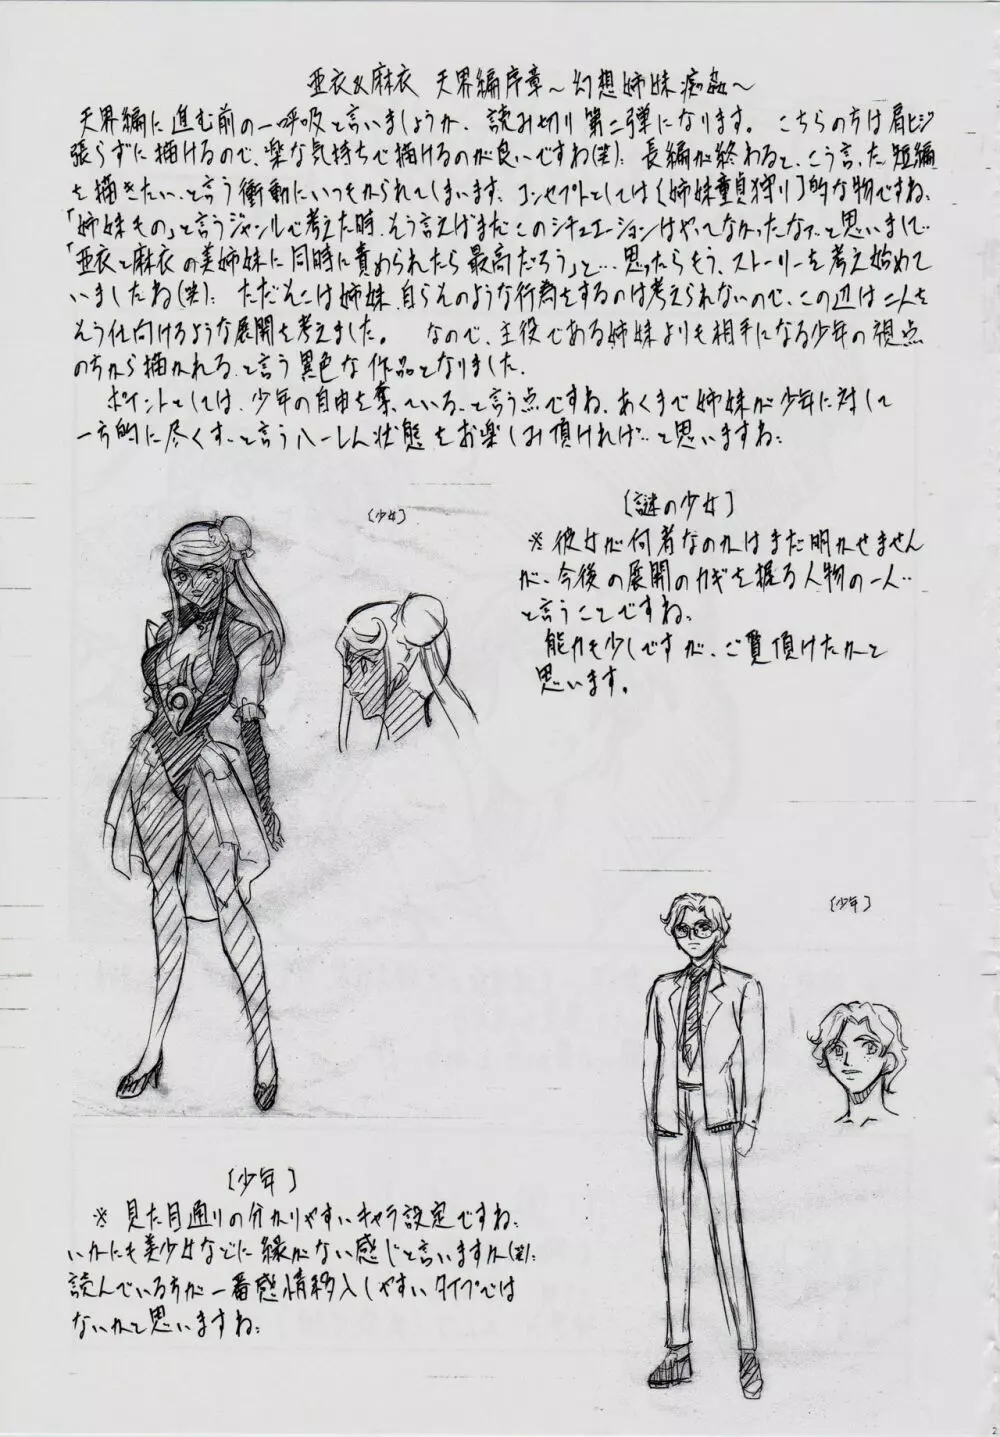 亜衣&麻衣 天界編序章~幻想姉妹痴姦~
天界編に進む前の一呼吸と言いましょうか、読み切り第二弾になります。 こちらの方は肩ヒジ
張らずに描けるので、楽な気持ちで描けるのが良いですね(笑); 長編が終わると、こう言った短編
を描きたい、と言う衝動にいつもかられてしまいます、コンセプトとしては〔姉妹童貞狩り〕的な物ですね、
「姉妹もの」と言うジャンルで考えた時、そう言えばまだこのシチュエーションはやってなかったなァ、と思いまして…
「亜衣と麻衣の美姉妹に同時に責められたら最高だろう」と…思ったらもう、ストーリーを考え始めて
いましたね(笑); ただそこは姉妹、自らそのような行為をするのは考えられないので、この辺は二人を
そう仕向けるような展開を考えました。 なので、主役である姉妹よりも相手になる少年の視点
の方から描かれる、と言う異色な作品となりました、
ポイントとしては、少年の自由を奪っている、と言う点ですね、あくまで姉妹が少年に対して
一方的に尽くす、と言うハーレム状態をお楽しみ頂ければ…と思いますね;
〔少女〕
〔謎の少女〕
※彼女が何者なのかはまだ明かせません
が、今後の展開のカギを握る人物の一人…
と言うことですね;
能力も少しですが、ご覧頂けたかと
思います。
〔少年〕
〔少年〕
※見た目通りの分かりやすいキャラ設定ですね、
いかにも美少女などに縁がない感じと言いますか(笑);
読んでいる方が一番感情移入しやすいタイプでは
ないかと思いますね;
2